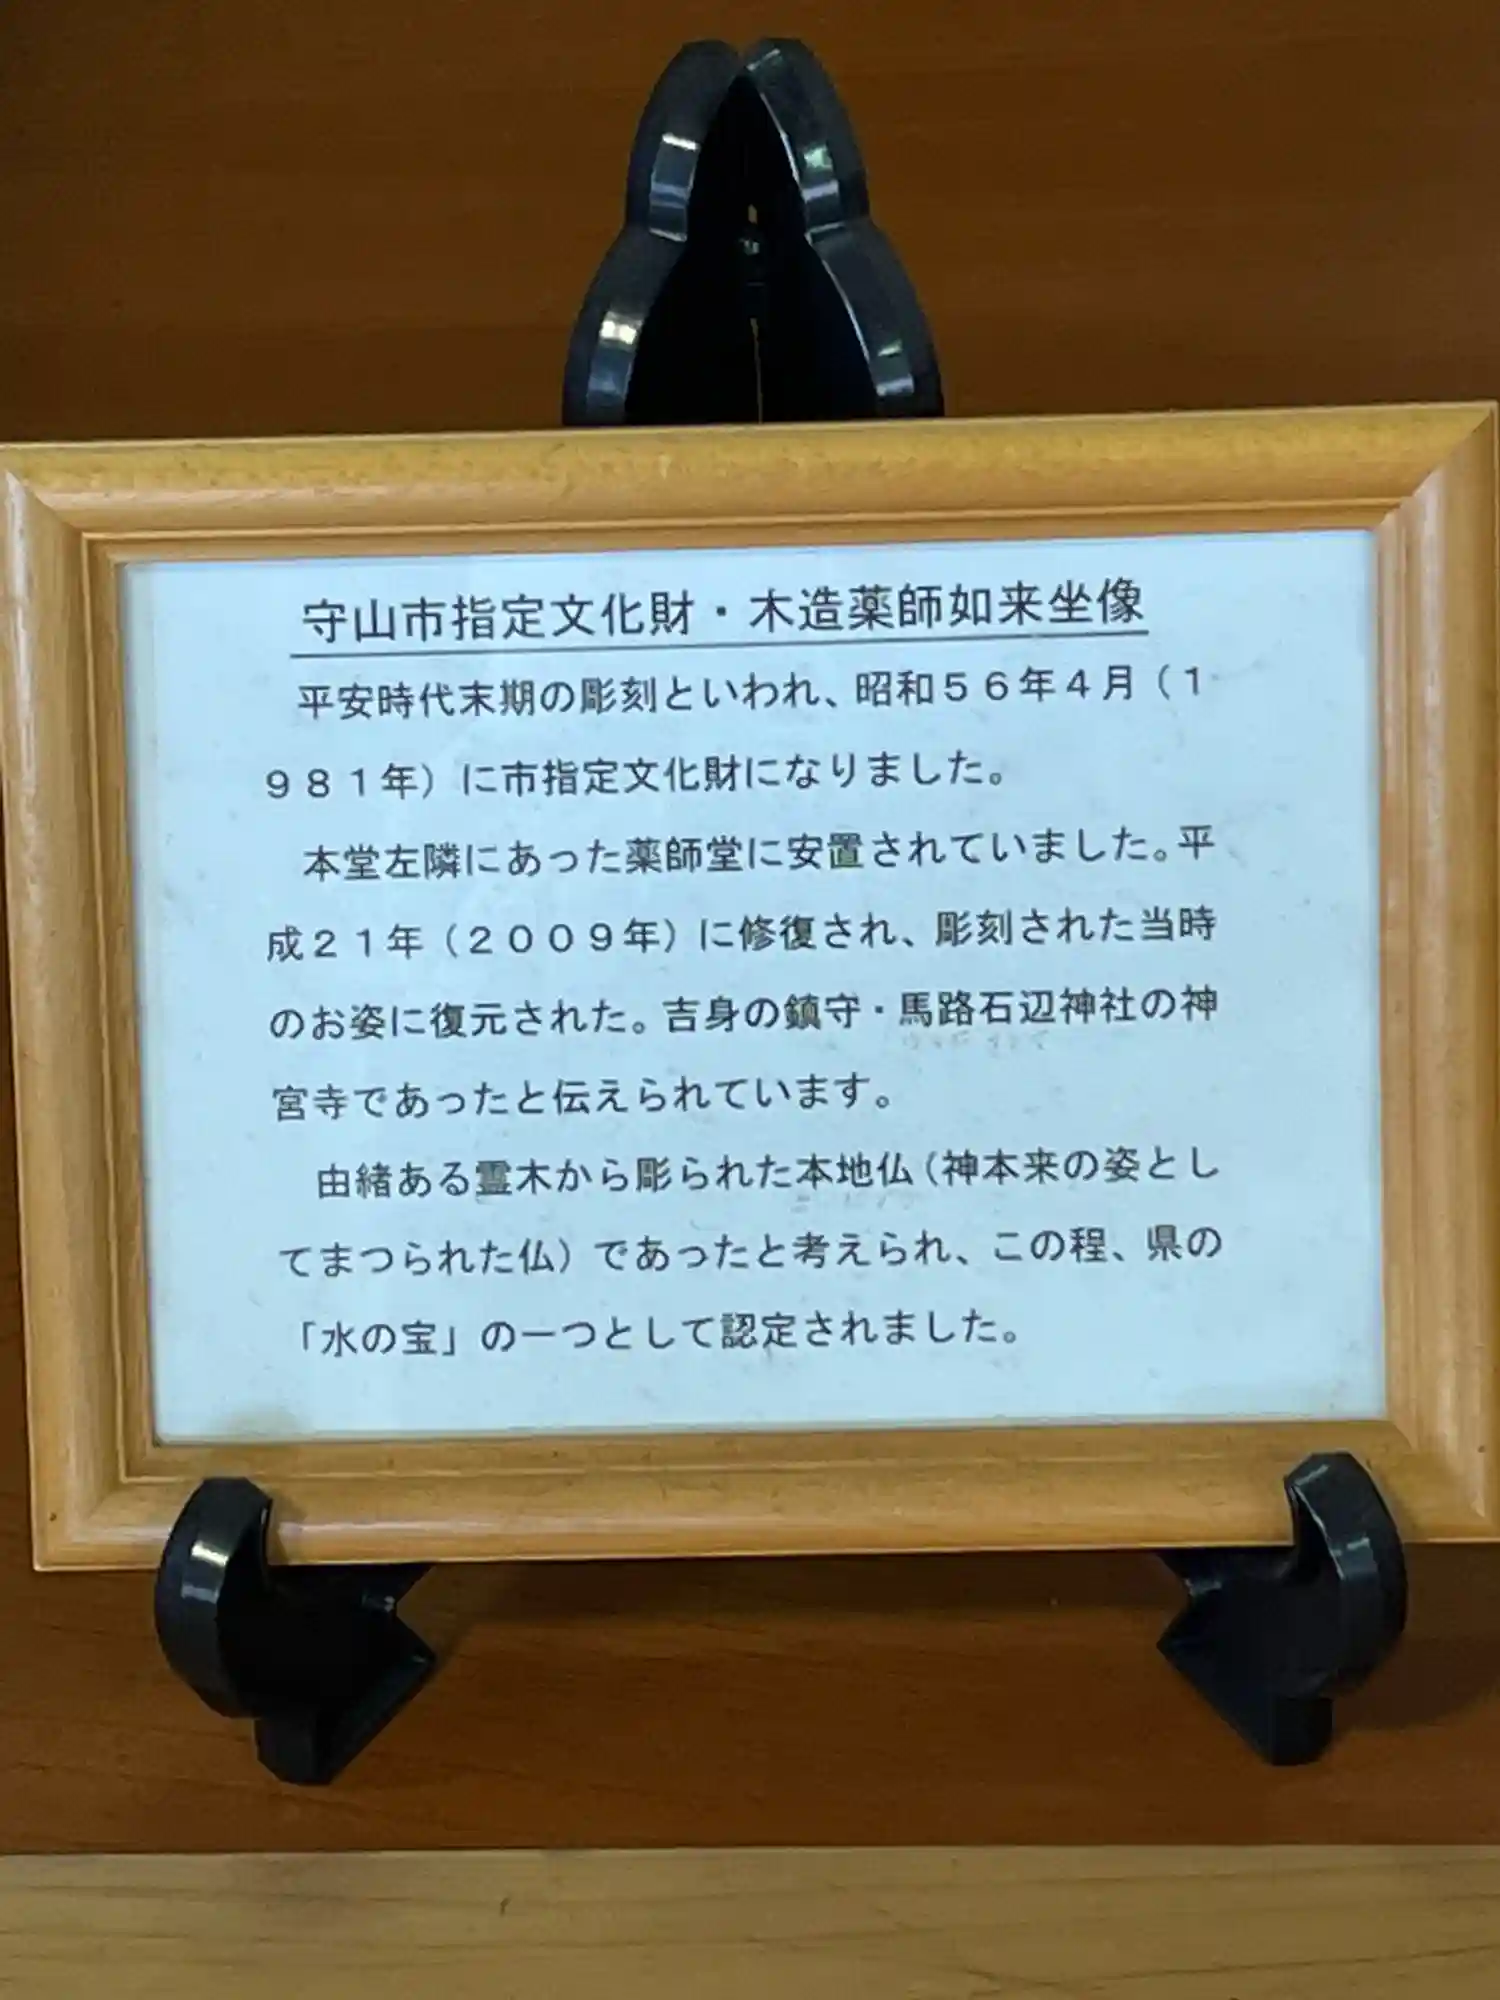 守山市指定文化財・木造薬師如来坐像
平安時代末期の彫刻といわれ、昭和５６年４月（１
９８１年）に市指定文化財になりました。
本堂左隣にあった薬師堂に安置されていました。平
成２１年（２００９年）に修復され、彫刻された当時
のお姿に復元された。吉身の鎮守・馬路石辺神社の神
宮寺であったと伝えられています。
由緒ある霊木から彫られた本地仏（神本来の姿とし
てまつられた仏）であったと考えられ、この程、県の
「水の宝」の一つとして認定されました。